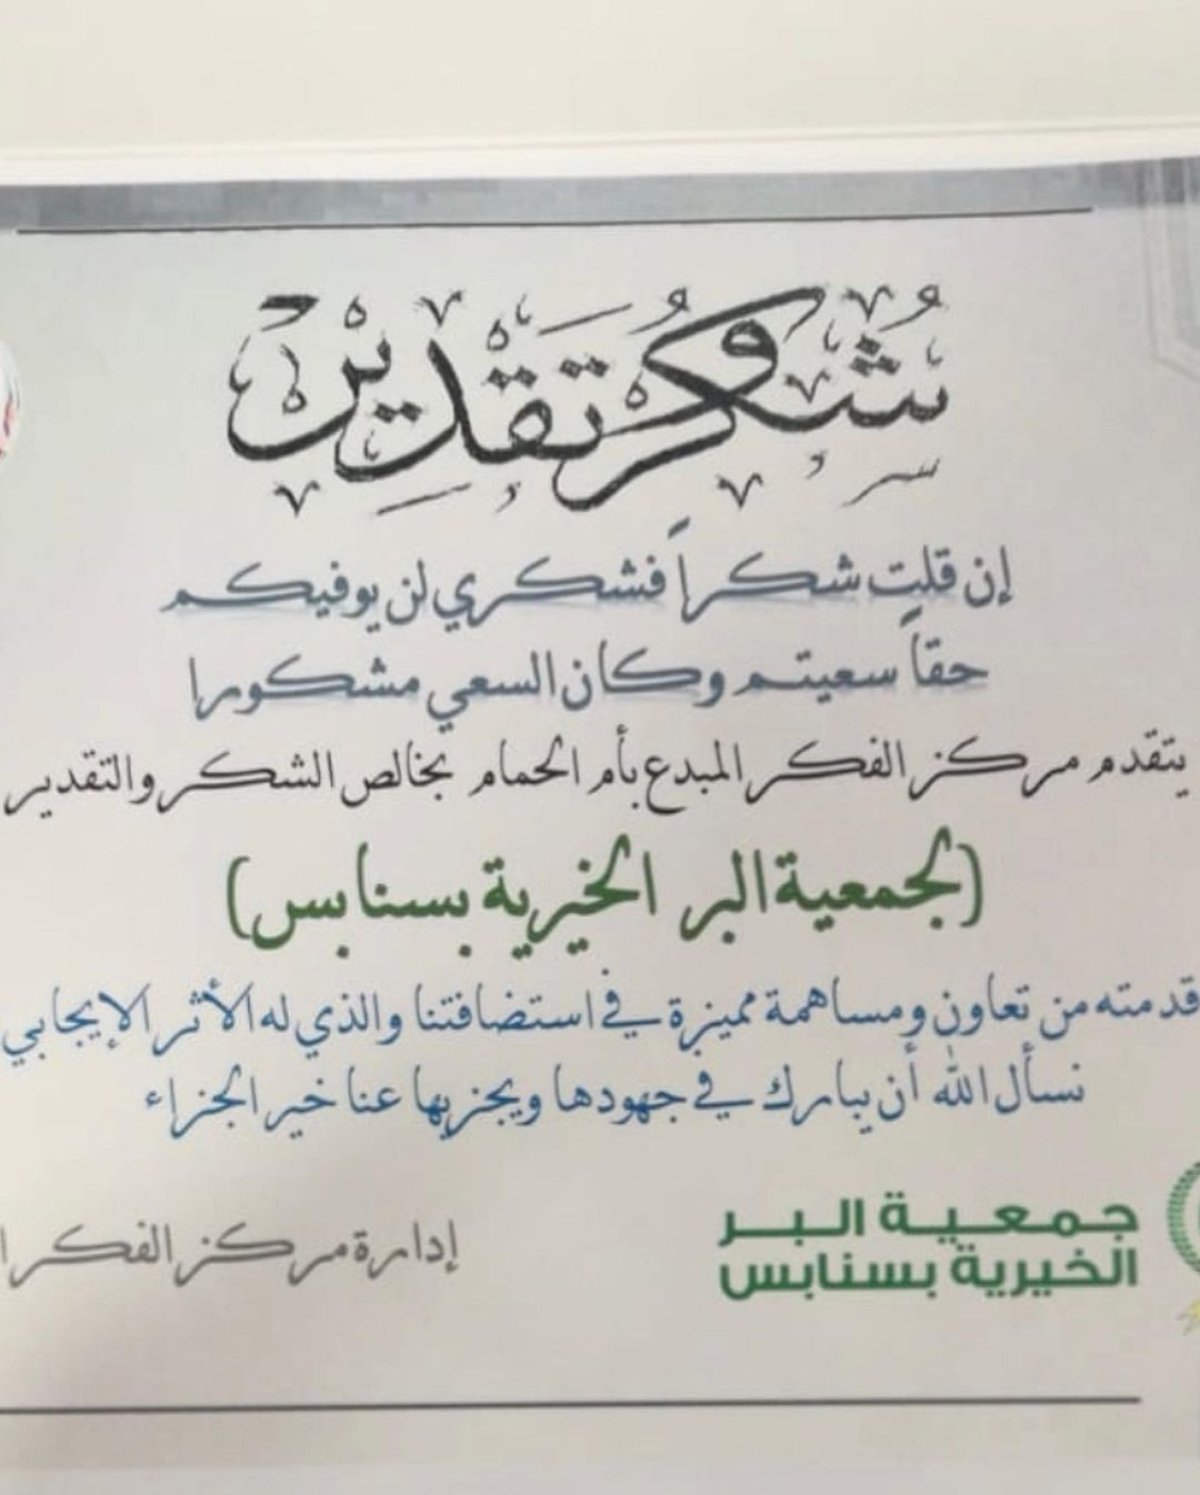 شكر وتقدير
إن قلت شكراً فشكري لن يوفيكم
حقاً سعيتم وكان السعي مشكورا
يتقدم مركز الفكر المبدع بأم الحمام بخالص الشكر والتقدير
(لجمعية البر الخيرية بسنابس)
قدمته من تعاون ومساهمة مميزة في استضافتنا والذي له الأثر الإيجابي
نسأل الله أن يبارك في جهودها ويجزيها عنا خير الجزاء
جمعية البر
الخيرية بسنابس
إدارة مركز الفكر